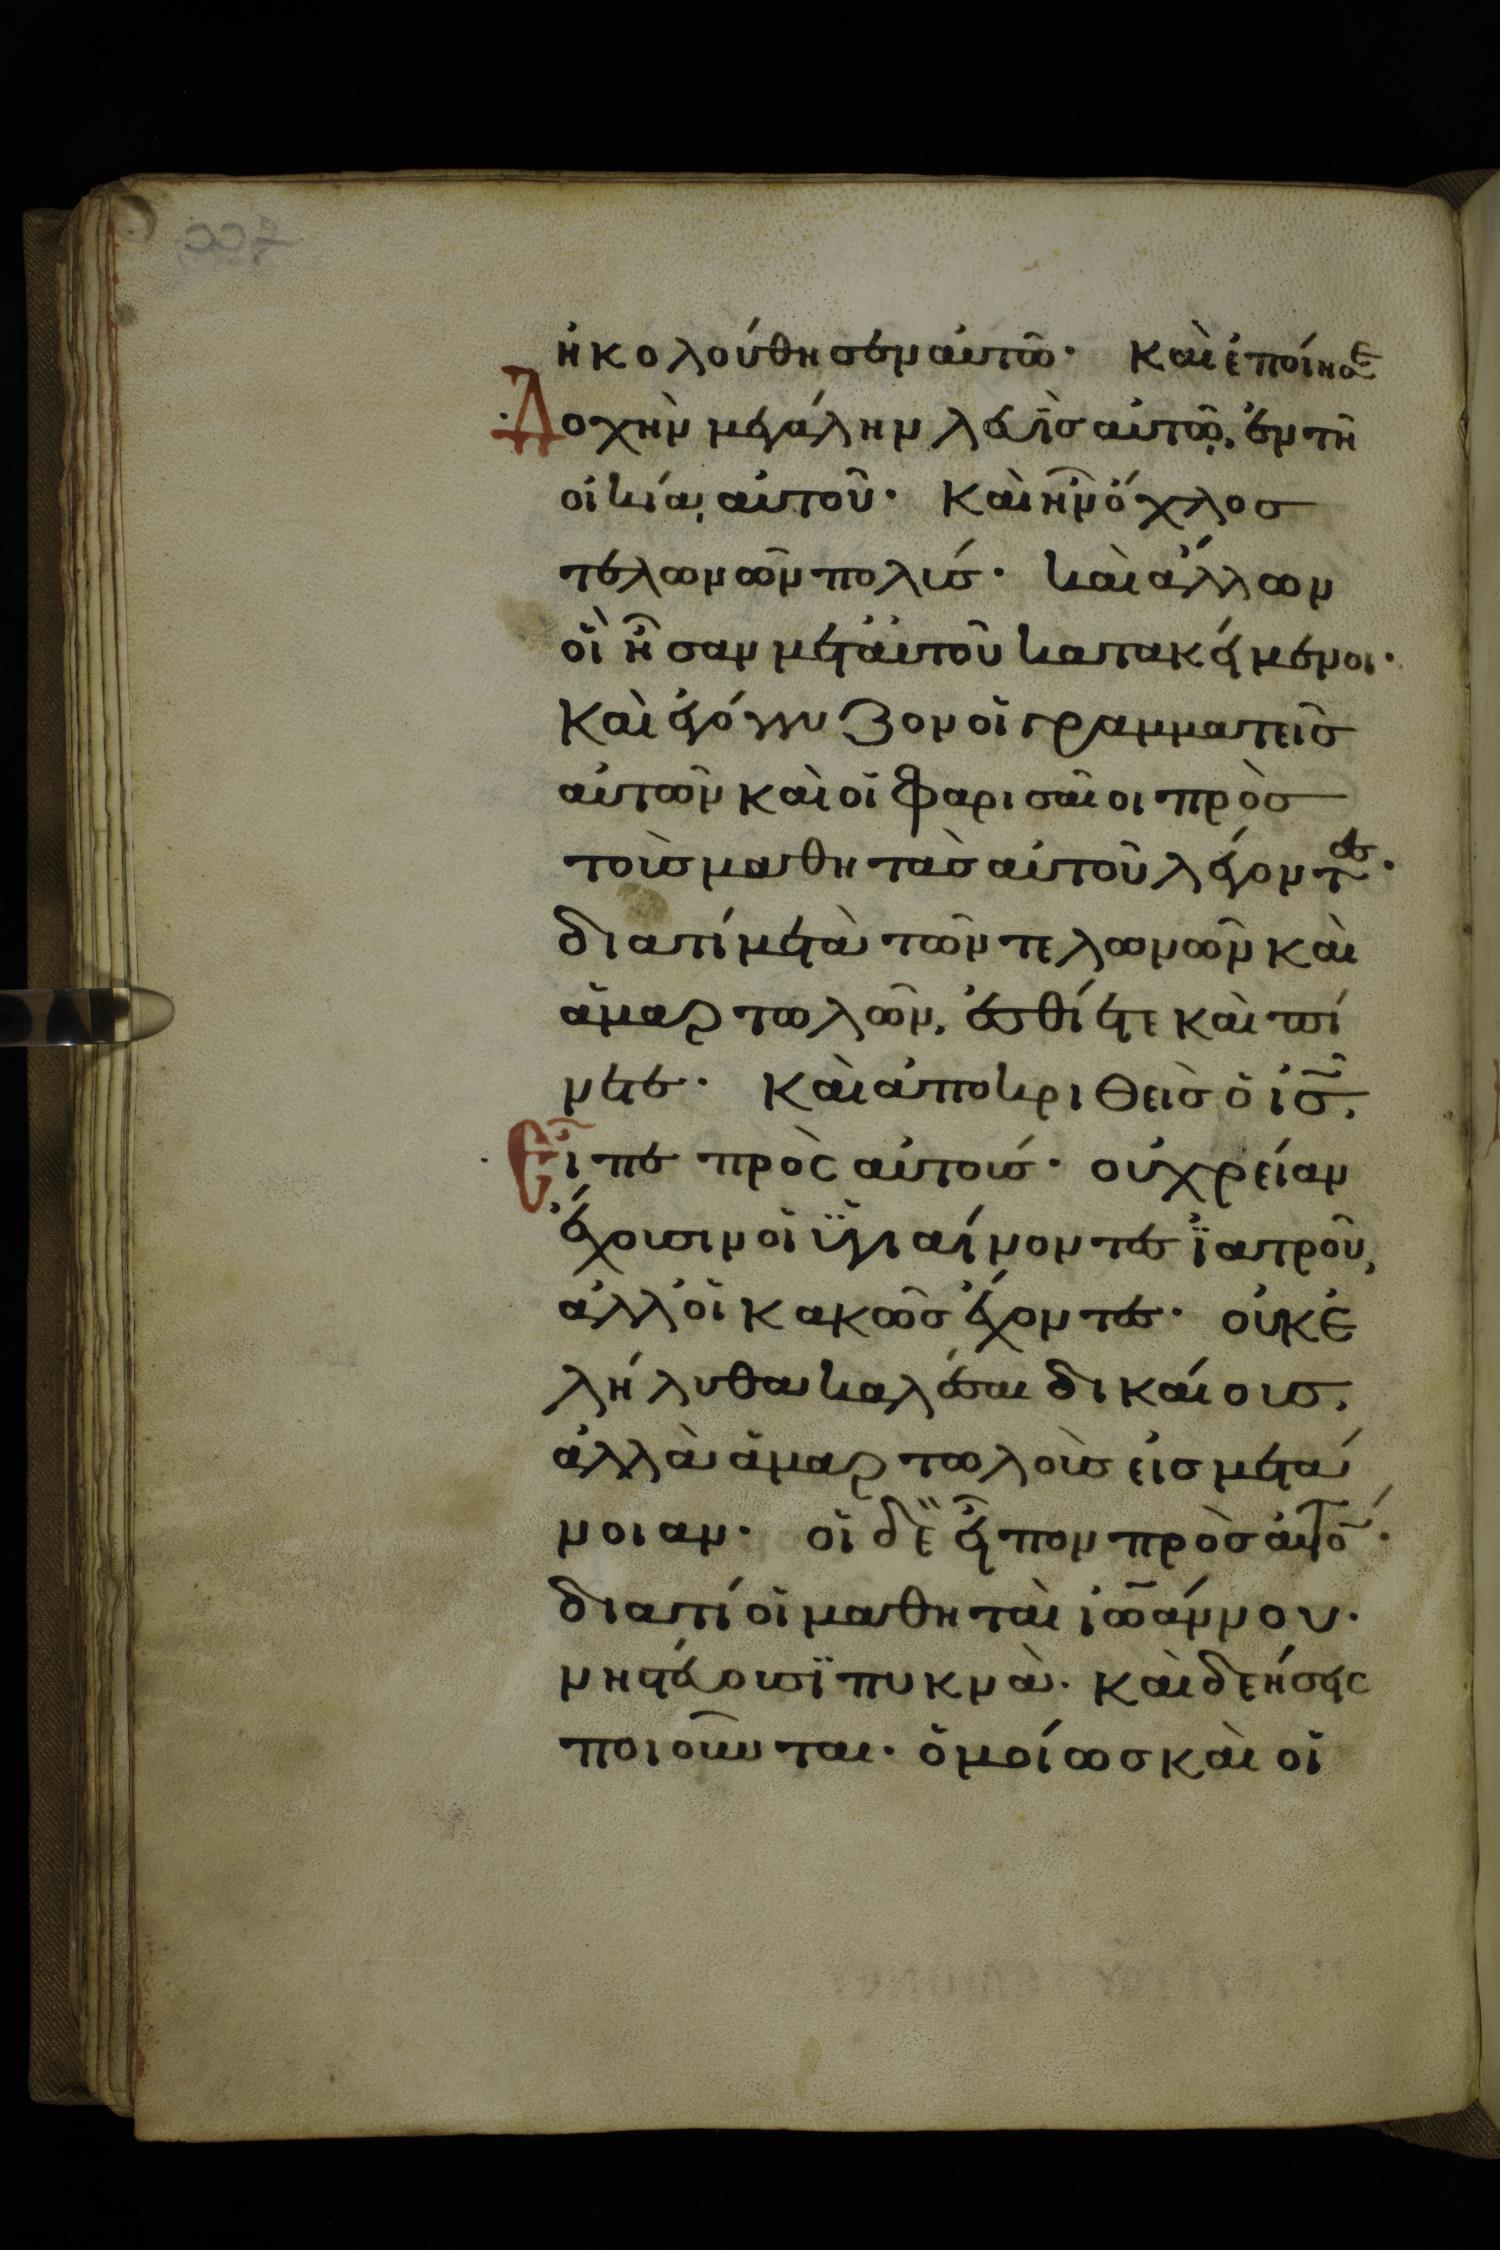 ἠκολούθησεν αὐτῶ· Καὶ ἐποίησε
Δοχὴν μεγάλην λευῒσ αὐτῶ, ἐν τῆ
οἰκία, αὐτοῦ· Καὶ ἦν ὄχλοσ
τελωνῶν πολύσ· καὶ ἄλλων
οἳ ἦσαν μετ' αὐτοῦ κατακείμενοι·
Καὶ ἐγόγγυζον οἱ γραμματεῖσ
αὐτῶν καὶ οἱ φαρισαῖοι πρὸσ
τοὺσ μαθητὰσ αὐτοῦ λέγοντες·
διατί μετὰ τῶν τελωνῶν καὶ
ἁμαρτωλῶν, ἐσθίετε καὶ πί
νετε· Καὶ ἀποκριθεὶσ ὁ ἰ̅σ̅.
Εἶπε πρὸς αὐτούσ· οὐ χρείαν
ἔχουσιν οἱ ὑγιαίνοντεσ ἰατροῦ,
ἀλλ' οἱ κακῶσ ἔχοντεσ· οὐκ ἐ
λήλυθα καλέσαι δικαίουσ,
ἀλλὰ ἁμαρτωλοὺσ εἰσ μετά
νοιαν· οἱ δὲ εἶπον πρὸσ αὐτό̅·
διατί οἱ μαθηταὶ ἰωάννου·
νηστεύουσϊ πυκνὰ· Καὶ δεήσεις
ποιοῦνται· ὁμοίωσ καὶ οἱ